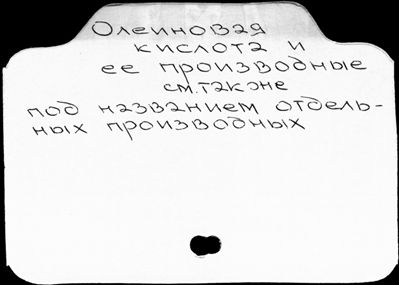 Олеиновая
кислота и
ее производные
см. также
под названием отдель-
ных производных